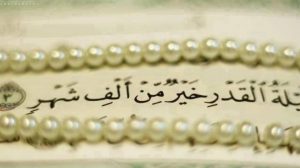 لَةُ الْقَدْرِ خَيْرٌ مِّنْ أَلْفِ شَهْرٍ ﴿٣﴾